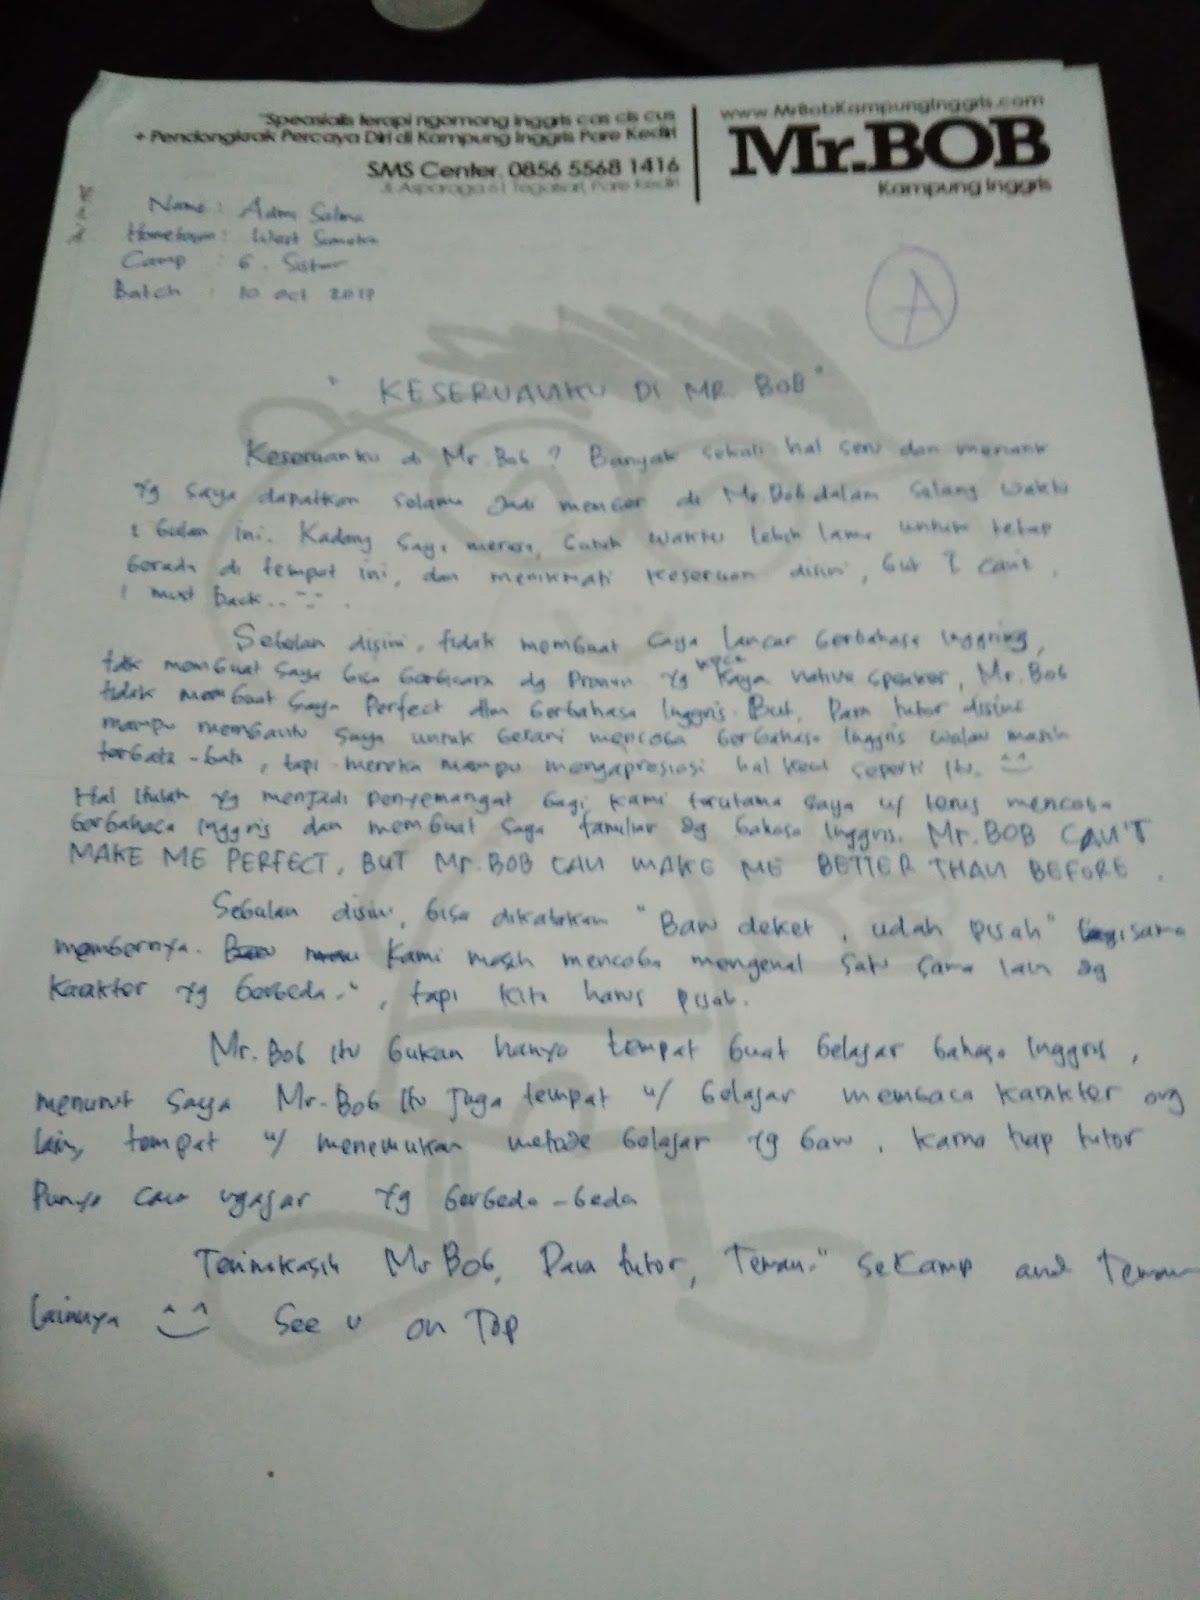 "Spesialis terapi ngomong Inggris cas cis cus
+ Pendongkrak Percaya Diri di Kampung Inggris Pare Kediri
SMS Center. 0856 5568 1416
Jl. Asparaga 61 Tegalsari, Pare Kediri
www.MrBobKampungInggris.com
Mr.BOB
Kampung Inggris
Name : Salma
Hometown : West Sumatra
Camp : 6. Sister
Batch : 10 Oct 2017
A
" KESERUANKU DI MR. BOB "
Keseruanku di Mr. Bob ? Banyak sekali hal seru dan menarik
yg saya dapatkan selama jadi member di Mr. Bob dalam selang waktu
1 bulan ini. Kadang saya merasa, butuh waktu lebih lama untuk tetap
berada di tempat ini, dan menikmati keseruan disini, but I can't,
I must back..
Sebulan disini, tidak membuat saya lancar berbahasa Inggring,
tdk membuat saya bisa berbicara dg Pronun yg kaya native speaker, Mr. Bob
tidak membuat saya Perfect dlm berbahasa Inggris. But, Para tutor disini
mampu membantu saya untuk berani mencoba berbahasa Inggris walau masih
terbata-bata, tapi mereka mampu mengapresiasi hal kecil seperti itu.
Hal itulah yg menjadi penyemangat bagi kami terutama saya u/ terus mencoba
berbahasa Inggris dan membuat saya familiar dg bahasa Inggris. Mr. BOB CAN'T
MAKE ME PERFECT, BUT Mr. BOB CAN MAKE ME BETTER THAN BEFORE.
Sebulan disini, bisa dikatakan "Baru deket, udah pisah" sama
membernya. Kami masih mencoba mengenal satu sama lain dg
karakter yg berbeda", tapi kita harus pisah.
Mr. Bob itu bukan hanya tempat buat belajar bahasa Inggris,
menurut saya Mr. Bob itu juga tempat u/ belajar membaca karakter org
lain, tempat u/ menemukan metode belajar yg baru, karna tiap tutor
Punya cara ngajar yg berbeda-beda
Terimakasih Mr Bob, Para tutor, Teman" sekamp and Teman
lainnya ^‿^ See u on Top